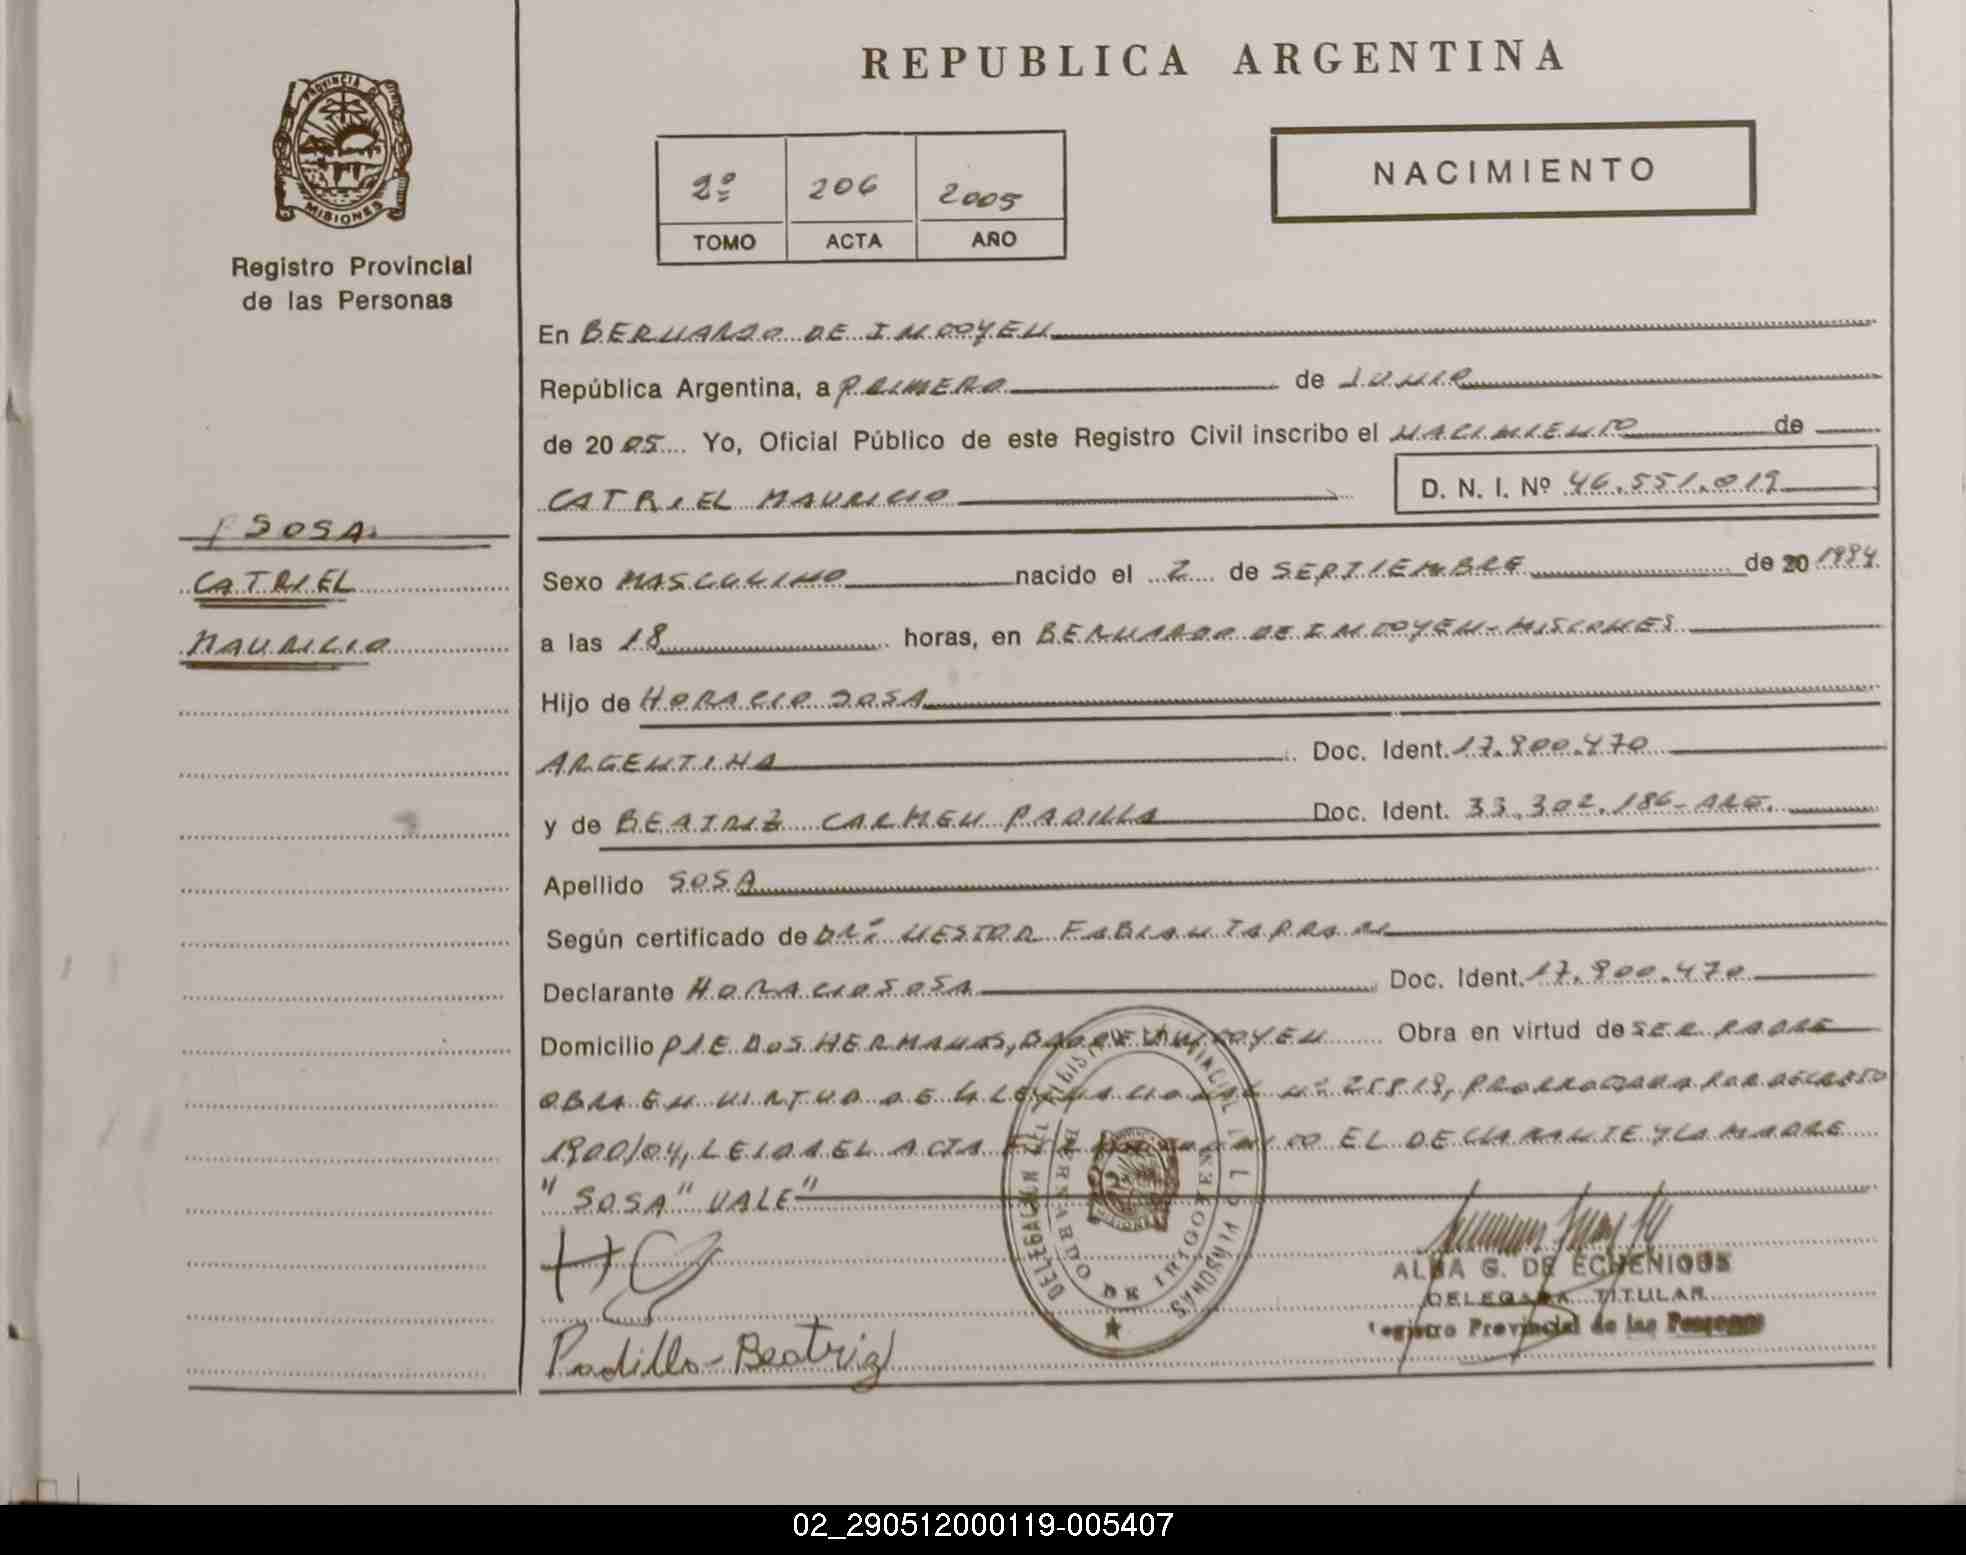 REPUBLICA ARGENTINA
PROVINCIA DE
MISIONES
Registro Provincial
de las Personas
2º 206 2005
TOMO ACTA AÑO
NACIMIENTO
En BERNARDO DE IRIGOYEN
República Argentina, a PRIMERO de JUNIO
de 2005 Yo, Oficial Público de este Registro Civil inscribo el NACIMIENTO de
CATRIEL MAURICIO D. N. I. Nº 46.551.019
SOSA
CATRIEL
MAURICIO
Sexo MASCULINO nacido el 2 de SEPTIEMBRE de 20 1994
a las 18 horas, en BERNARDO DE IRIGOYEN-MISIONES
Hijo de HORACIO SOSA
ARGENTINA Doc. Ident. 17.900.470
y de BEATRIZ CARMEN PADILLA Doc. Ident. 33.302.186-ARG.
Apellido SOSA
Según certificado de DR: NESTOR FABIAN
Declarante HORACIO SOSA Doc. Ident. 17.900.470
Domicilio PJE DOS HERMANAS, Obra en virtud de SER PADRE
OBRA EN VIRTUD DE LA LEY NACIONAL Nº 25819, PRORROGADA POR DECRETO
1900/04, LEIDA EL ACTA EL DECLARANTE Y LA MADRE
"SOSA" VALE"
HS
Padilla-Beatriz
DELEGACION DEL REGISTRO PROVINCIAL DE LAS PERSONAS
BERNARDO DE IRIGOYEN
MISIONES
ALBA G. DE ECHENIQUE
DELEGADA TITULAR
Registro Provincial de las Personas
02_290512000119-005407